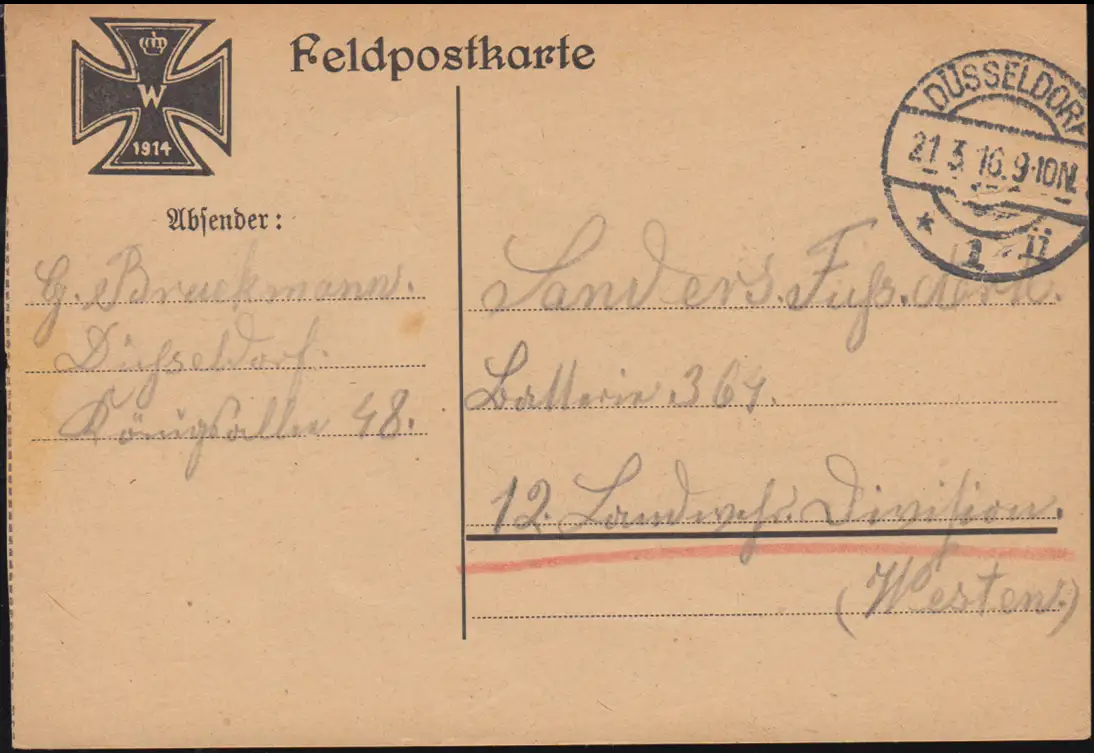 W
1914
Feldpostkarte
DÜSSELDORF
21.3.16.9-10N.
* 1 ii
Absender:
G. Bruckmann.
Düsseldorf.
Königsallee 48.
Sanders. Fußs.
Batterie 364.
12. Landwehr. Division.
(Westen.)